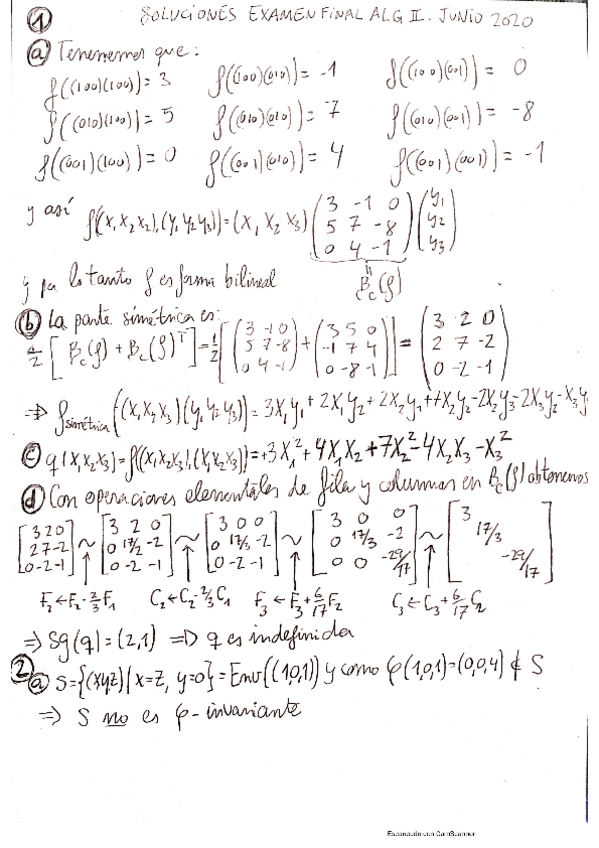 ① SOLUCIONES EXAMEN FINAL ALG II. JUNIO 2020
ⓐ Tenememos que:
f((100)(100)) = 3 f((100)(010)) = -1 f((100)(001)) = 0
f((010)(100)) = 5 f((010)(010)) = 7 f((010)(001)) = -8
f((001)(100)) = 0 f((001)(010)) = 4 f((001)(001)) = -1
y así f((x₁ x₂ x₃),(y₁ y₂ y₃)) = (x₁ x₂ x₃) (3 -1 0 / 5 7 -8 / 0 4 -1) (y₁ / y₂ / y₃)
y por lo tanto f es forma bilineal
B_c(f)
ⓑ La parte simétrica es:
1/2 [B_c(f) + B_c(f)^T] = 1/2 [(3 -1 0 / 5 7 -8 / 0 4 -1) + (3 5 0 / -1 7 4 / 0 -8 -1)] = (3 2 0 / 2 7 -2 / 0 -2 -1)
⇒ f simétrica ((x₁ x₂ x₃)(y₁ y₂ y₃)) = 3x₁y₁ + 2x₁y₂ + 2x₂y₁ + 7x₂y₂ - 2x₂y₃ - 2x₃y₂ - x₃y
ⓒ q(x₁ x₂ x₃) = f((x₁ x₂ x₃),(x₁ x₂ x₃)) = +3x₁² + 4x₁x₂ + 7x₂² - 4x₂x₃ - x₃²
ⓓ Con operaciones elementales de fila y columnas en B_c(f) obtenemos
[3 2 0 / 2 7 -2 / 0 -2 -1] ~ [3 2 0 / 0 17/2 -2 / 0 -2 -1] ~ [3 0 0 / 0 17/3 -2 / 0 -2 -1] ~ [3 0 0 / 0 17/3 -2 / 0 0 -29/17] ~ [3 / 17/3 / -29/17]
F₂←F₂-2/3F₁ C₂←C₂-2/3C₁ F₃←F₃+6/17F₂ C₃←C₃+6/17C₂
⇒ Sg(q) = (2,1) ⇒ q es indefinida
② ⓐ S={(xyz) | x=z, y=0} = Env((1,0,1)) y como φ(1,0,1)=(0,0,4) ∉ S
⇒ S no es φ-invariante
Escaneado con CamScanner